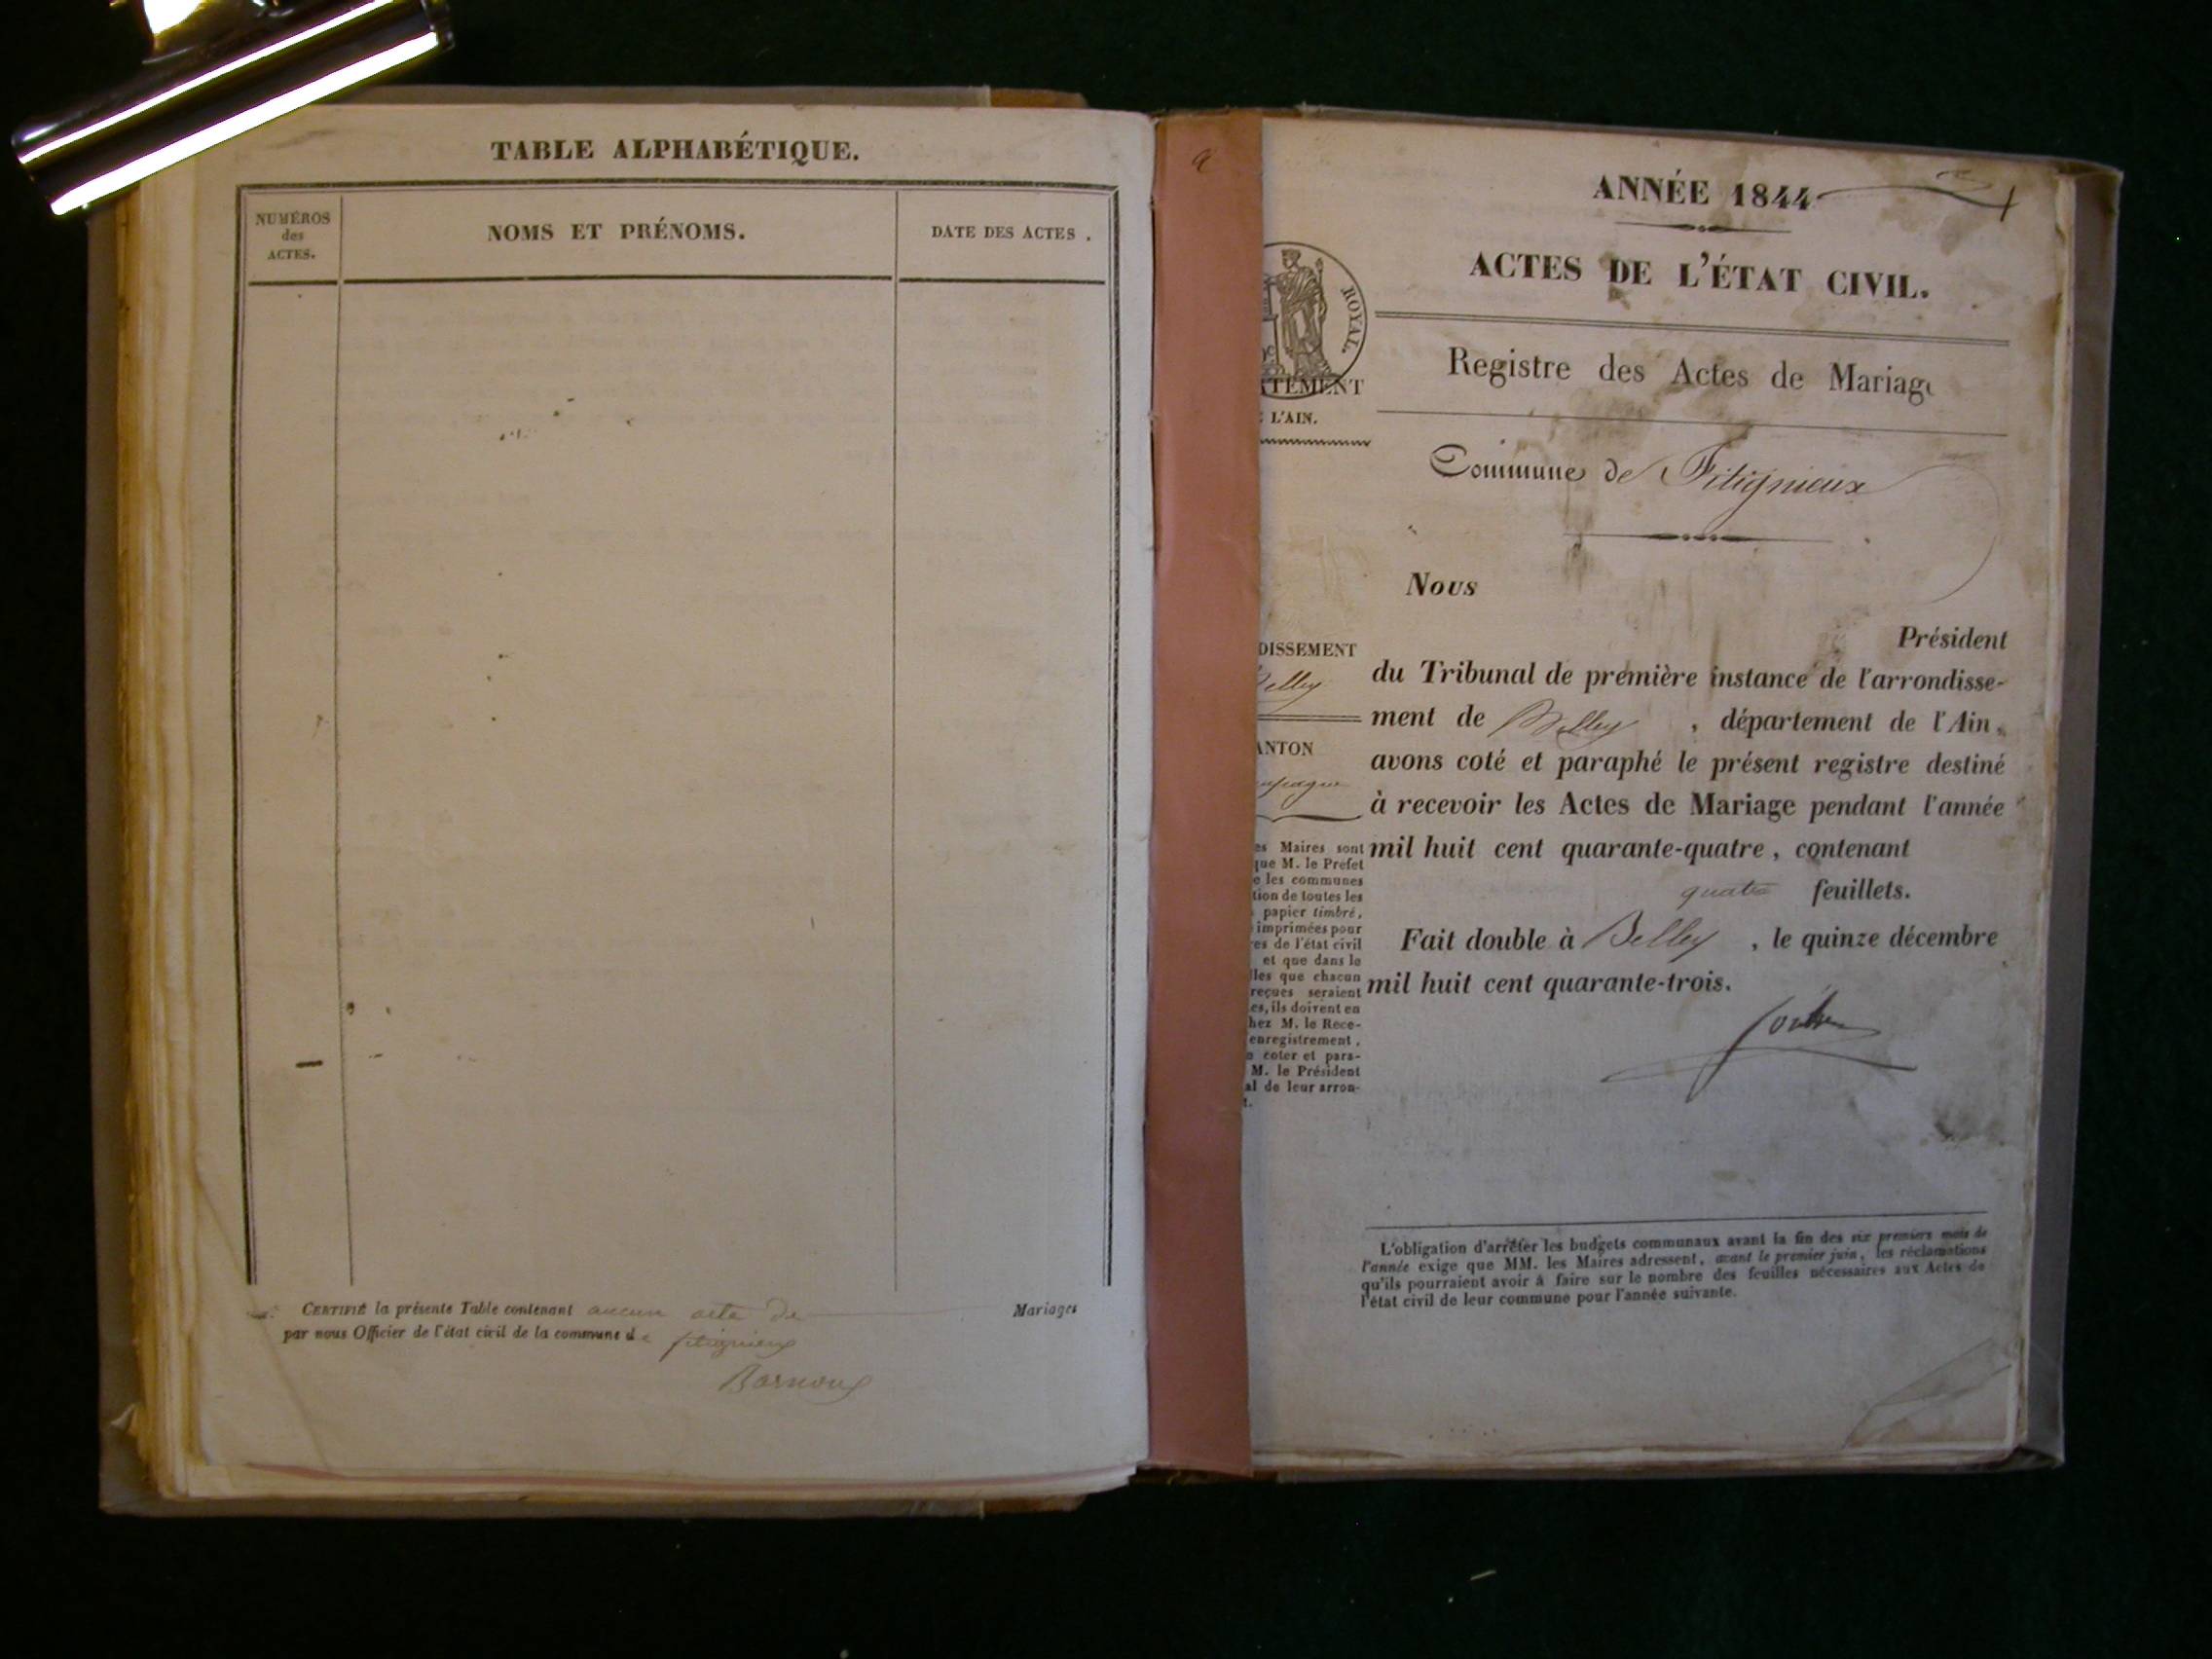 TABLE ALPHABÉTIQUE.
NUMÉROS
des
ACTES.
NOMS ET PRÉNOMS.
DATE DES ACTES.
CERTIFIÉ la présente Table contenant aucun acte de Mariages
par nous Officier de l'état civil de la commune de fitignieux
ANNÉE 1844
ACTES DE L'ÉTAT CIVIL.
ROYAL.
TEMENT
L'AIN.
Registre des Actes de Mariage
Commune de Fitignieux
Nous
Président
DISSEMENT
Belley
du Tribunal de première instance de l'arrondisse-
ment de Belley, département de l'Ain,
ANTON
avons coté et paraphé le présent registre destiné
à recevoir les Actes de Mariage pendant l'année
mil huit cent quarante-quatre, contenant
quatre feuillets.
Fait double à Belley, le quinze décembre
mil huit cent quarante-trois.
es Maires sont
que M. le Préfet
e les communes
tion de toutes les
papier timbré,
imprimées pour
res de l'état civil
et que dans le
lles que chacun
reçues seraient
es, ils doivent en
hez M. le Rece-
enregistrement,
coter et para-
M. le Président
al de leur arron-
t.
L'obligation d'arrêter les budgets communaux avant la fin des six premiers mois de
l'année exige que MM. les Maires adressent, avant le premier juin, les réclamations
qu'ils pourraient avoir à faire sur le nombre des feuilles nécessaires aux Actes de
l'état civil de leur commune pour l'année suivante.